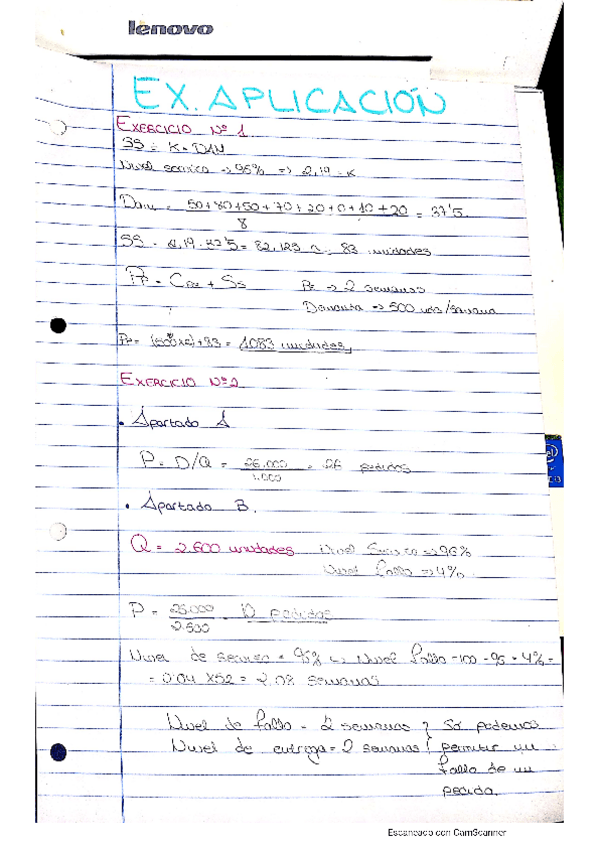 lenovo
EX. APLICACIÓN
EXERCICIO Nº 1
SS = K · DAM
Nivel servicio → 96% => 2,19 = K
Dam = 50+80+50+70+20+0+10+20 / 8 = 37'5
SS = 2,19 · 37'5 = 82,125 ≈ 83 unidades
PP = + SS
→ 2 semanas
Demanda → 500 uds/semana
PP = (500x2)+83 = 1083 unidades
EXERCICIO Nº 2
• Apartado A
P = D/Q = 26.000 / 1.000 = 26 pedidos
• Apartado B.
Q = 2.600 unidades Nivel Servicio → 96%
Nivel fallo → 4%
P = 26.000 / 2.600 = 10 pedidos
Nivel de servicio = Nivel fallo = 4% =
= 0.04 x52 = 2.08 semanas
Nivel de fallo = 2 semanas } Só podemos
Nivel de entrega = 2 semanas } permitir un
fallo de un
pedido.
Escaneado con CamScanner